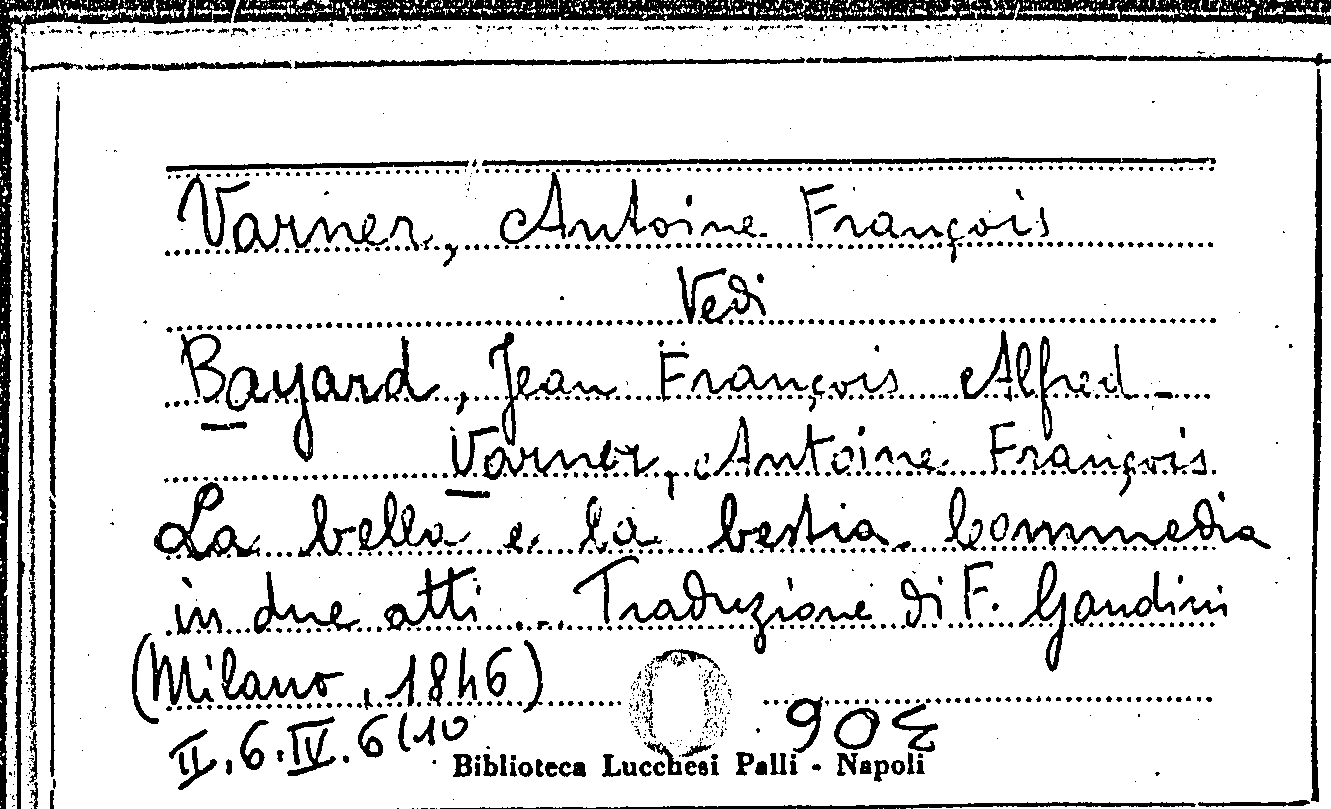 Varner, Antoine François
Vedi
Bayard, Jean François Alfred -
Varner, Antoine François
La bella e la bestia. Commedia
in due atti ... Traduzione di F. Gandini
(Milano, 1846)
II.6.IV.6(10
Biblioteca Lucchesi Palli - Napoli